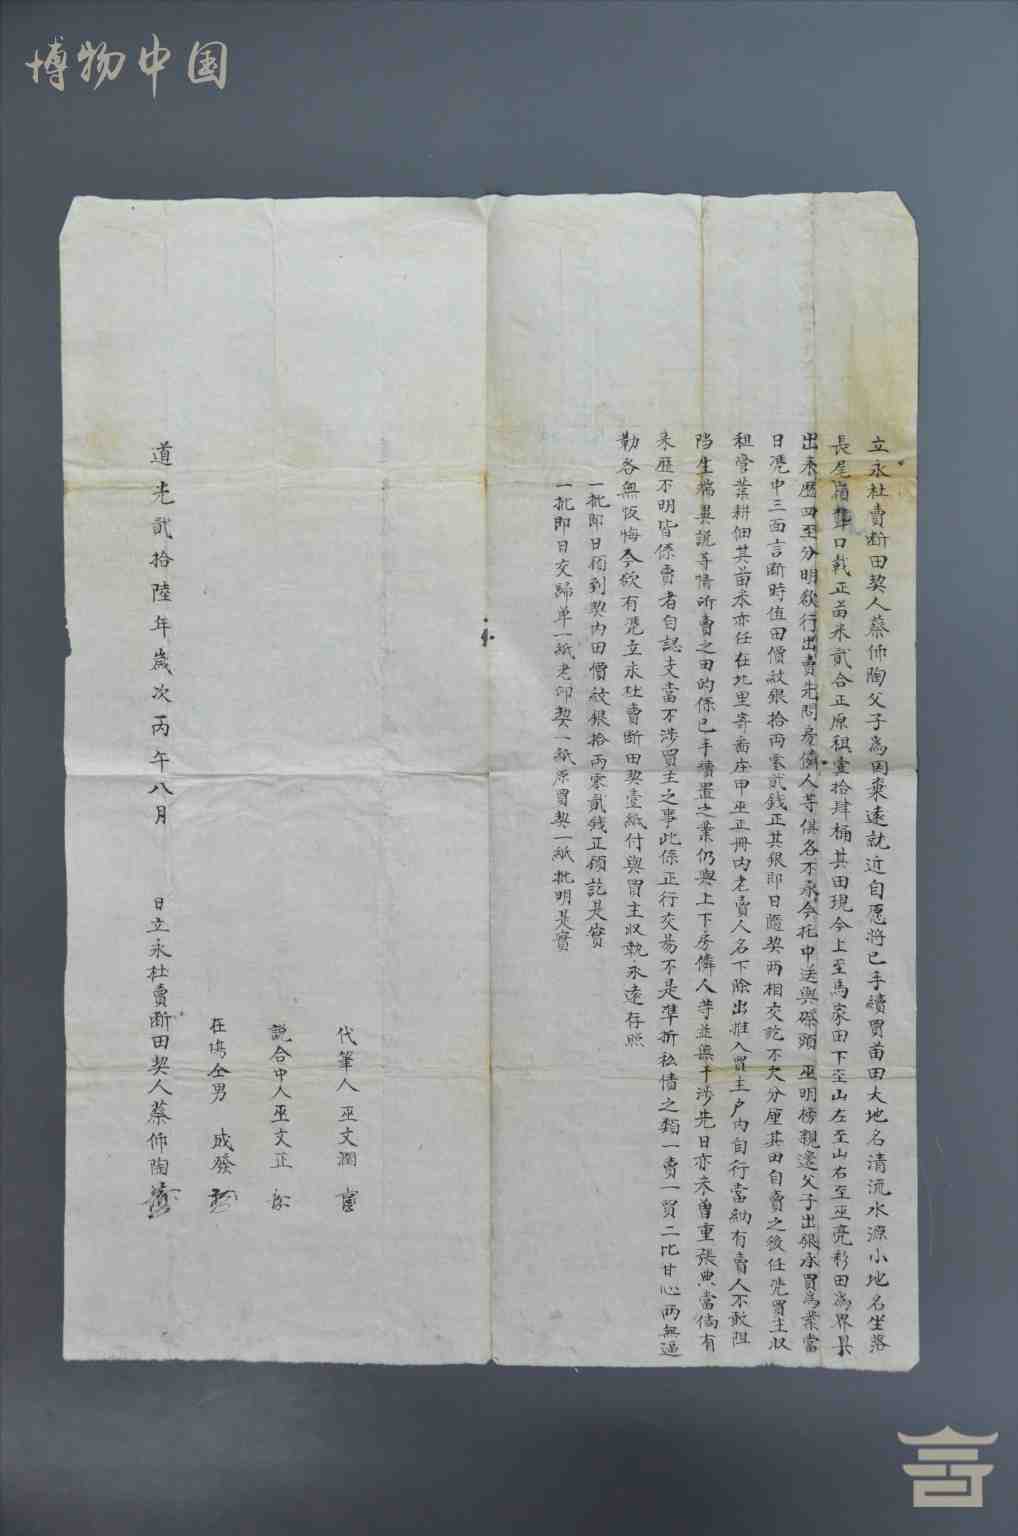 博物中国
立永杜賣断田契人蔡仰陶父子為因棄遠就近自愿將己手續買苗田大地名清流水源小地名坐落
長尾嶺 口載正苗米貳合正原租壹拾肆桶其田現今上至馬家田下至山左至山右至巫亮彩田為界具
出来歷四至分明欲行出賣先問房儕人等俱各不承今托中送與 頭巫明榜親邊父子出銀承買為業當
日凴中三面言断時值田價紋銀拾両零貳錢正其銀即日隨契両相交訖不欠分厘其田自賣之後任凴買主収
租管業耕佃其苗米亦任在北里寄 庄甲巫正冊内老賣人名下除出推入買主户内自行當納有賣人不敢阻
挡生端異説等情所賣之田的係己手續置之業仍與上下房儕人等並無干涉先日亦未曾重張典當倘有
来歷不明皆係賣者自認支當不涉買主之事此係正行交易不是準折私債之類一賣一買二比甘心両無逼
勒各無恢悔今欲有凴立永杜賣断田契壹紙付與買主収執永遠存照
一批即日領到契内田價紋銀拾両零貳錢正領訖是實
一批即日交歸单一紙老印契一紙原買契一紙批明是實
代筆人巫文潤
説合中人巫文正
在塲仝男 成發
道光貳拾陸年歲次丙午八月 日立永杜賣断田契人蔡仰陶